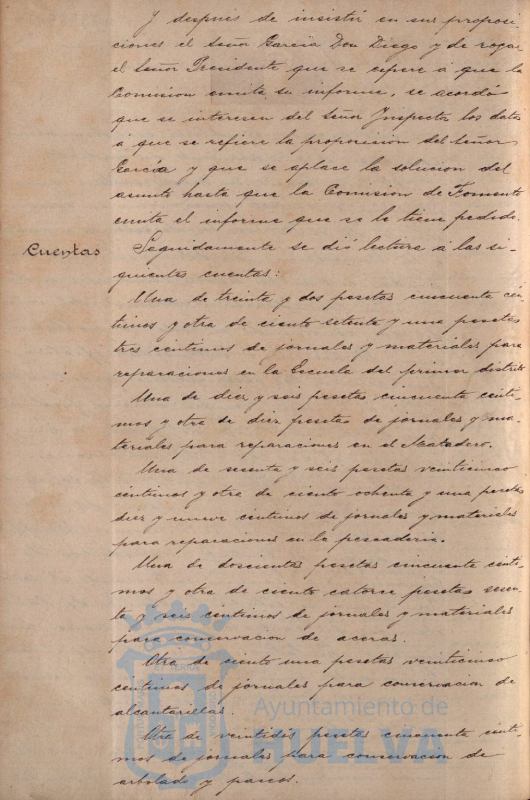 Y después de insistir en sus proposi-
ciones el Señor Garcia Don Diego y de rogar
el Señor Presidente que se espere á que la
Comision emita su informe, se acordó
que se interesen del Señor Inspector los datos
á que se refiere la proposicion del Señor
Garcia y que se aplace la solucion del
asunto hasta que la Comision de Fomento
emita el informe que se le tiene pedido.
Cuentas
Seguidamente se dió lectura á las si-
guientes cuentas:
Una de treinta y dos pesetas cincuenta cén-
timos y otra de ciento setenta y una pesetas
tres centimos de jornales y materiales para
reparaciones en la Escuela del primer distrito
Una de diez y seis pesetas cincuenta centi-
mos y otra de diez pesetas de jornales y ma-
teriales para reparaciones en el Matadero.
Una de sesenta y seis pesetas veinticinco
centimos y otra de ciento ochenta y una pesetas
diez y nueve centimos de jornales y materiales
para reparaciones en la pescaderia.
Una de doscientas pesetas cincuenta centi-
mos y otra de ciento catorce pesetas
y seis centimos de jornales y materiales
para conservacion de aceras.
Otra de ciento una pesetas veinticinco
centimos de jornales para conservacion de
alcantarillas.
Otra de veintidos pesetas cincuenta centi-
mos de jornales para conservacion de
arbolado y paseos.
Ayuntamiento de
HUELVA